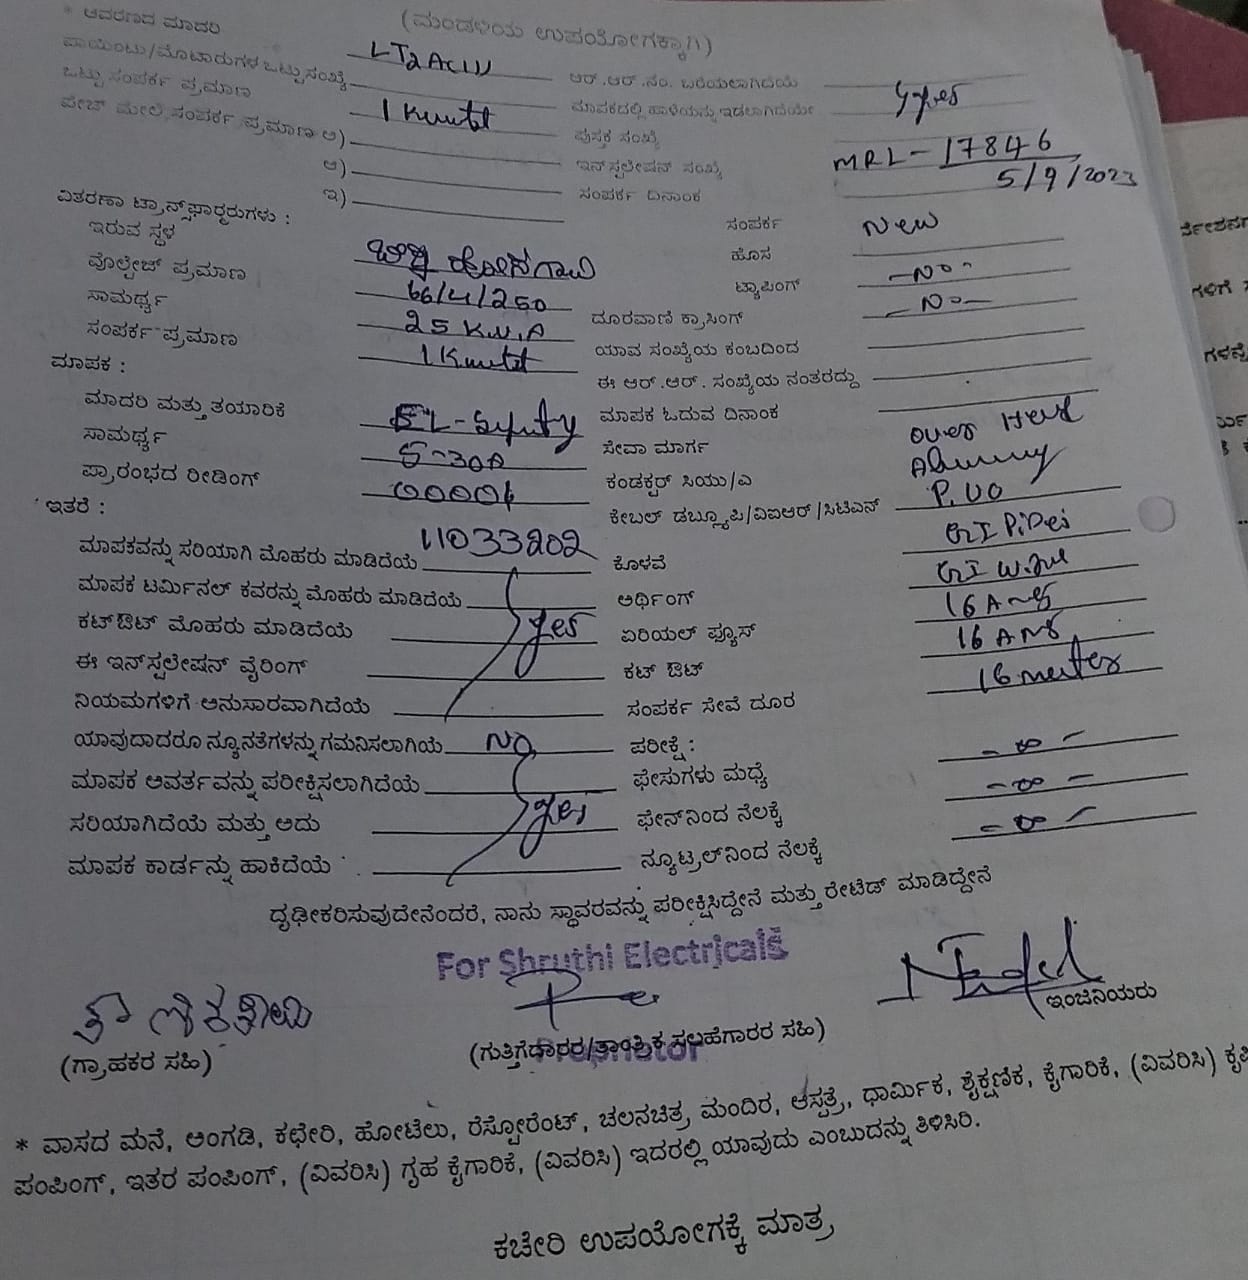 * ಆವರಣದ ಮಾದರಿ
(ಮಂಡಳಿಯ ಉಪಯೋಗಕ್ಕಾಗಿ)
ಪಾಯಿಂಟು/ಮೋಟಾರುಗಳ ಒಟ್ಟು ಸಂಖ್ಯೆ LT2A ಆರ್.ಆರ್.ನಂ. ಬರೆಯಲಾಗಿದೆಯೆ
ಒಟ್ಟು ಸಂಪರ್ಕ ಪ್ರಮಾಣ 1 Kwatt ಮಾಪಕದಲ್ಲಿ ಹಾಳೆಯನ್ನು ಇಡಲಾಗಿದೆಯೇ yes
ಪೇಚ್ ಮೇಲೆ ಸಂಪರ್ಕ ಪ್ರಮಾಣ ಅ) ಪುಸ್ತಕ ಸಂಖ್ಯೆ
ಆ) ಇನ್‌ಸ್ಟಲೇಷನ್ ಸಂಖ್ಯೆ MRL - 17846
ಇ) ಸಂಪರ್ಕ ದಿನಾಂಕ 5/9/2023
ವಿತರಣಾ ಟ್ರಾನ್ಸ್‌ಫಾರ್ಮರುಗಳು : ಸಂಪರ್ಕ New
ಇರುವ ಸ್ಥಳ ಹೊಸ
ವೋಲ್ಟೇಜ್ ಪ್ರಮಾಣ 66/4/250 ಟ್ಯಾಪಿಂಗ್ - No -
ಸಾಮರ್ಥ್ಯ 25 K.V.A ದೂರವಾಣಿ ಕ್ರಾಸಿಂಗ್ - No -
ಸಂಪರ್ಕ ಪ್ರಮಾಣ 1 Kwatt ಯಾವ ಸಂಖ್ಯೆಯ ಕಂಬದಿಂದ
ಮಾಪಕ : ಈ ಆರ್.ಆರ್. ಸಂಖ್ಯೆಯ ನಂತರದ್ದು
ಮಾದರಿ ಮತ್ತು ತಯಾರಿಕೆ ಮಾಪಕ ಓದುವ ದಿನಾಂಕ
ಸಾಮರ್ಥ್ಯ 5-30A ಸೇವಾ ಮಾರ್ಗ over Head
ಪ್ರಾರಂಭದ ರೀಡಿಂಗ್ 00001 ಕಂಡಕ್ಟರ್ ಸಿಯು/ಎ
ಇತರೆ : ಕೇಬಲ್ ಡಬ್ಲ್ಯೂಪಿ/ವಿಐಆರ್/ಸಿಟಿಎಸ್ P.VC
ಮಾಪಕವನ್ನು ಸರಿಯಾಗಿ ಮೊಹರು ಮಾಡಿದೆಯೆ 11033202 ಕೊಳವೆ GI Pipe
ಮಾಪಕ ಟರ್ಮಿನಲ್ ಕವರನ್ನು ಮೊಹರು ಮಾಡಿದೆಯೆ ಅರ್ಥಿಂಗ್ GI
ಕಟ್‌ಔಟ್ ಮೊಹರು ಮಾಡಿದೆಯೆ yes ಏರಿಯಲ್ ಫ್ಯೂಸ್ 16 Ams
ಈ ಇನ್‌ಸ್ಟಲೇಷನ್ ವೈರಿಂಗ್ ಕಟ್ ಔಟ್ 16 Ams
ನಿಯಮಗಳಿಗೆ ಅನುಸಾರವಾಗಿದೆಯೆ ಸಂಪರ್ಕ ಸೇವೆ ದೂರ 16 meter
ಯಾವುದಾದರೂ ನ್ಯೂನತೆಗಳನ್ನು ಗಮನಿಸಲಾಗಿಯೆ No ಪರೀಕ್ಷೆ :
ಮಾಪಕ ಆವರ್ತವನ್ನು ಪರೀಕ್ಷಿಸಲಾಗಿದೆಯೆ ಫೇಸುಗಳು ಮಧ್ಯೆ - ∞ -
ಸರಿಯಾಗಿದೆಯೆ ಮತ್ತು ಅದು yes ಫೇಸ್‌ನಿಂದ ನೆಲಕ್ಕೆ - ∞ -
ಮಾಪಕ ಕಾರ್ಡನ್ನು ಹಾಕಿದೆಯೆ ನ್ಯೂಟ್ರಲ್‌ನಿಂದ ನೆಲಕ್ಕೆ - ∞ -
ದೃಢೀಕರಿಸುವುದೇನೆಂದರೆ, ನಾನು ಸ್ಥಾವರವನ್ನು ಪರೀಕ್ಷಿಸಿದ್ದೇನೆ ಮತ್ತು ರೇಟೆಡ್ ಮಾಡಿದ್ದೇನೆ
For Shruthi Electricals
ಇಂಜಿನಿಯರು
(ಗ್ರಾಹಕರ ಸಹಿ) (ಗುತ್ತಿಗೆದಾರರ/ತಾಂತ್ರಿಕ ಸಲಹೆಗಾರರ ಸಹಿ)
Proprietor
* ವಾಸದ ಮನೆ, ಅಂಗಡಿ, ಕಛೇರಿ, ಹೋಟೆಲು, ರೆಸ್ಟೋರೆಂಟ್, ಚಲನಚಿತ್ರ ಮಂದಿರ, ಆಸ್ಪತ್ರೆ, ಧಾರ್ಮಿಕ, ಶೈಕ್ಷಣಿಕ, ಕೈಗಾರಿಕೆ, (ವಿವರಿಸಿ)
ಪಂಪಿಂಗ್, ಇತರ ಪಂಪಿಂಗ್, (ವಿವರಿಸಿ) ಗೃಹ ಕೈಗಾರಿಕೆ, (ವಿವರಿಸಿ) ಇದರಲ್ಲಿ ಯಾವುದು ಎಂಬುದನ್ನು ತಿಳಿಸಿರಿ.
ಕಚೇರಿ ಉಪಯೋಗಕ್ಕೆ ಮಾತ್ರ